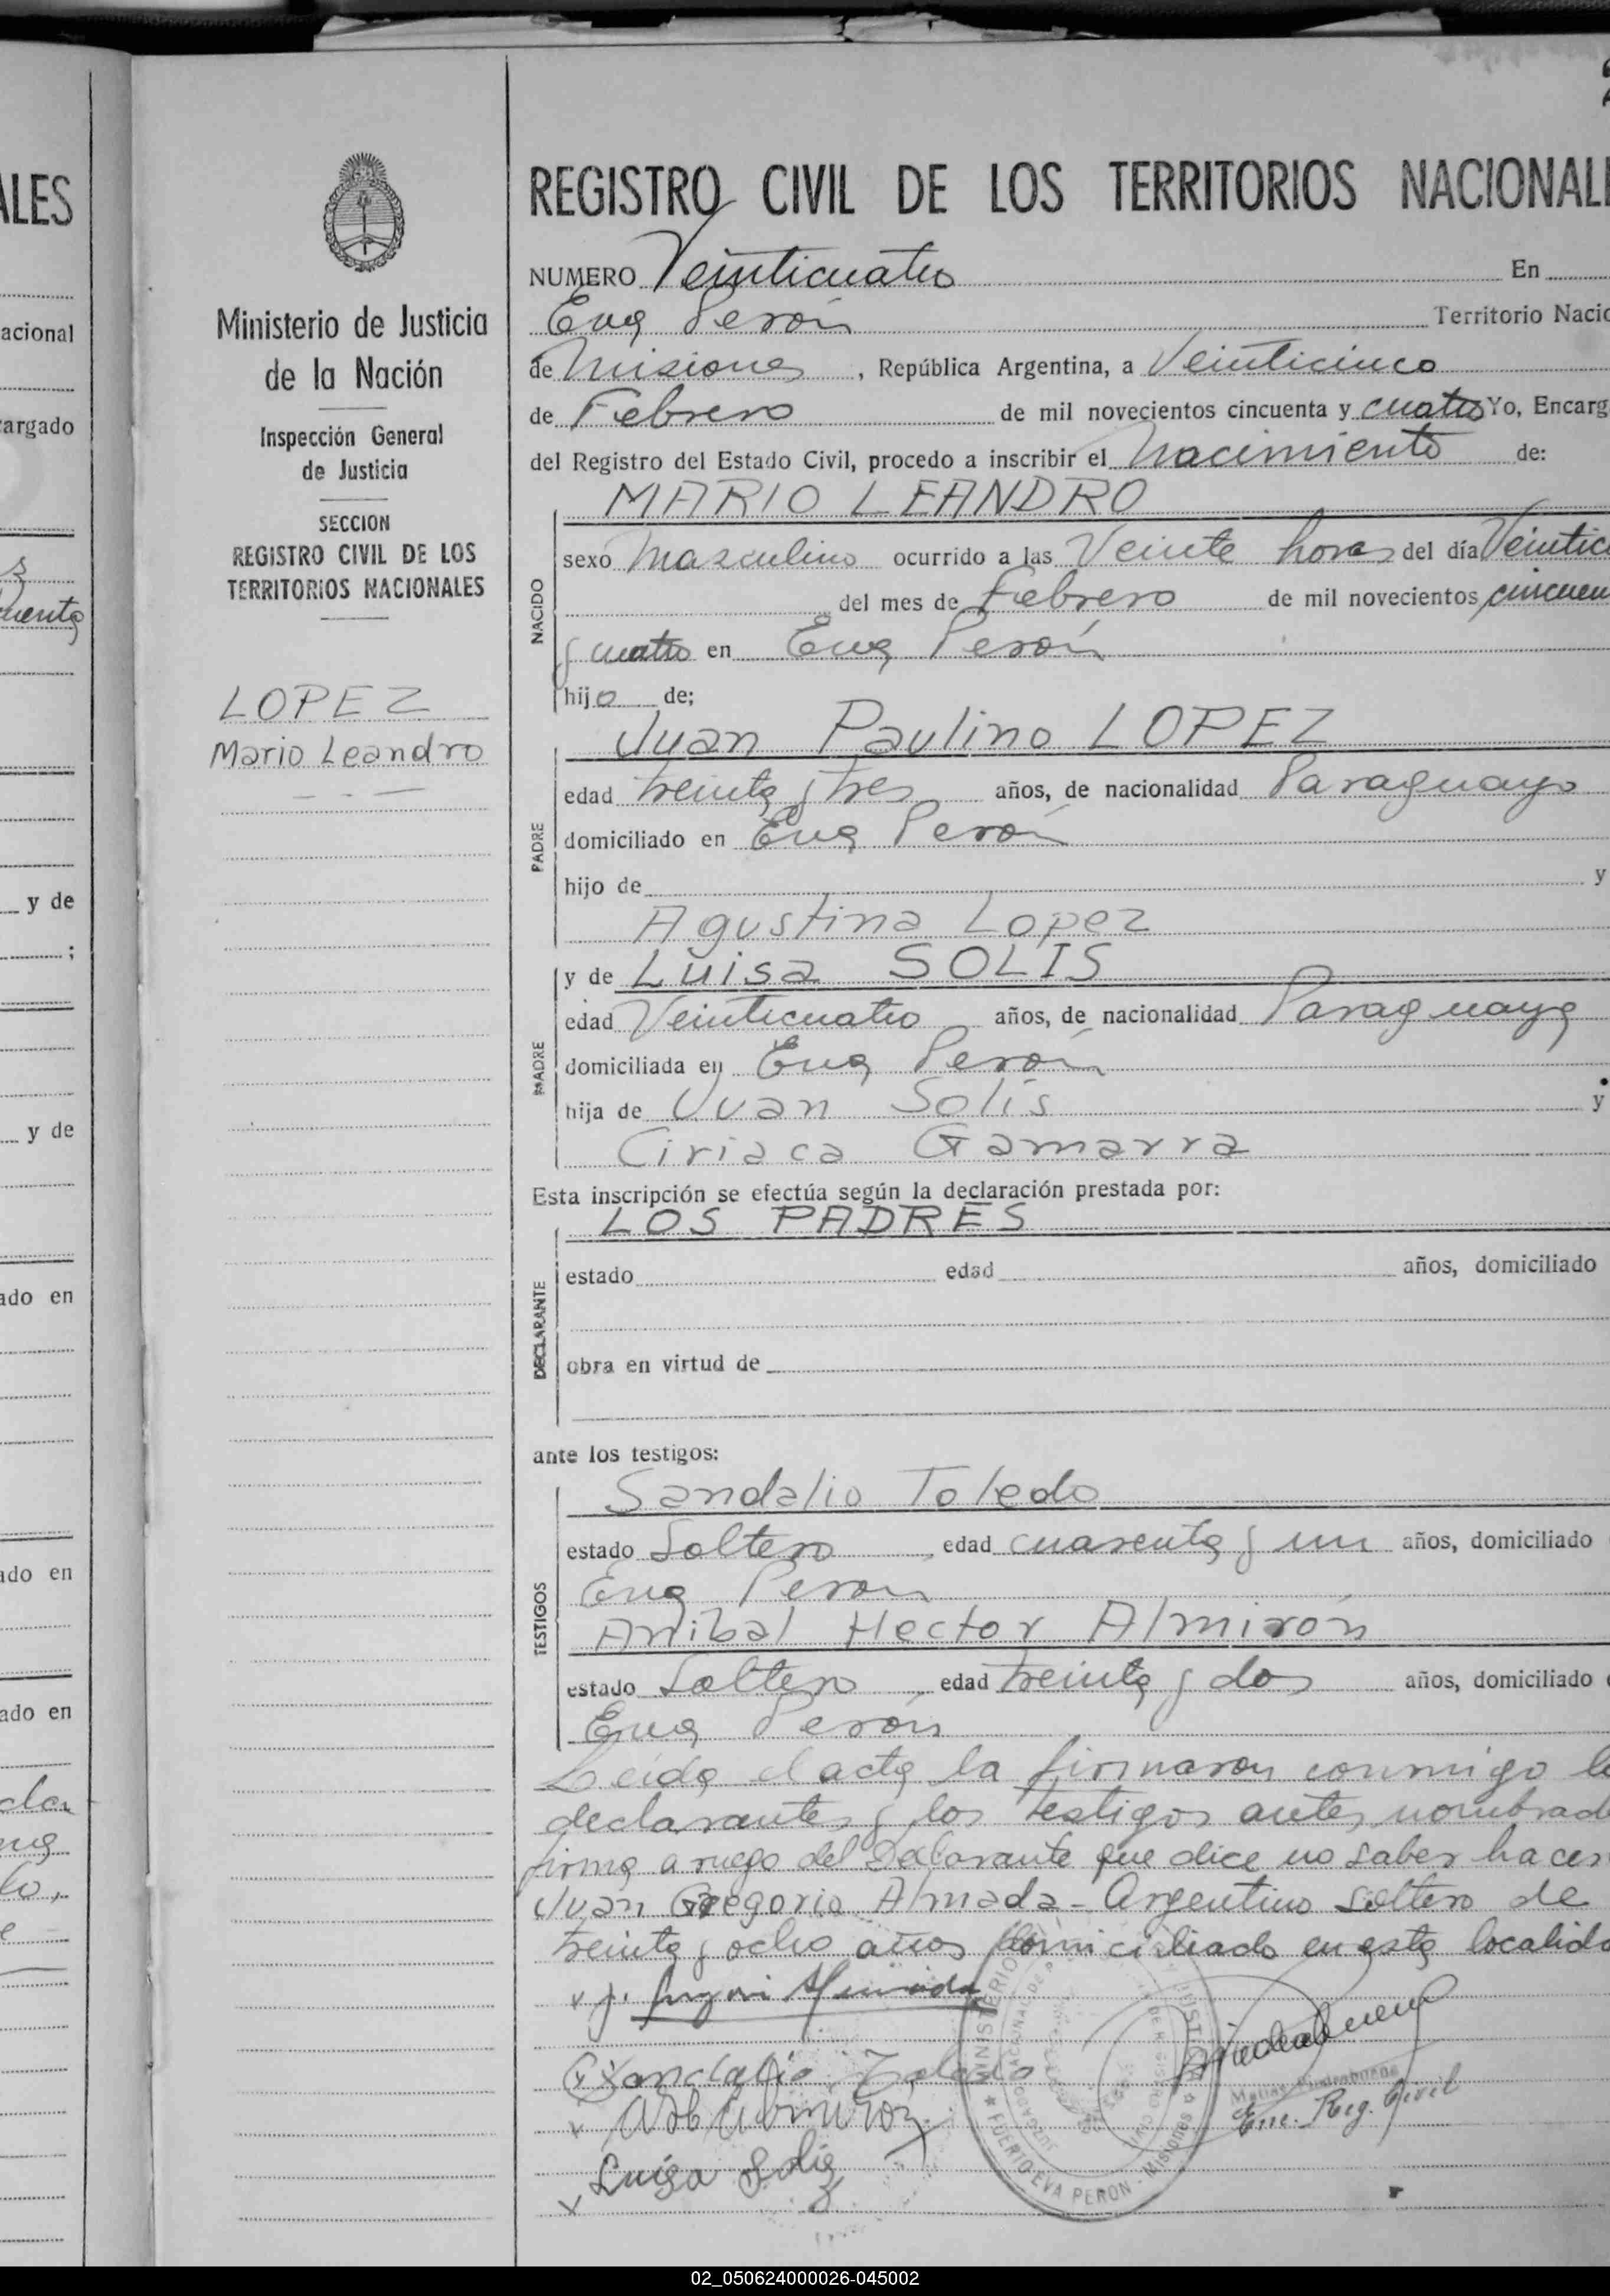 ALES
acional
argado
s
cuenta
y de
;
y de
ado en
ado en
ado en
Ministerio de Justicia
de la Nación
Inspección General
de Justicia
SECCION
REGISTRO CIVIL DE LOS
TERRITORIOS NACIONALES
LOPEZ
Mario Leandro
REGISTRO CIVIL DE LOS TERRITORIOS NACIONALE
NUMERO Veinticuatro En
Eva Perón Territorio Nacio
de Misiones, República Argentina, a Veinticinco
de Febrero de mil novecientos cincuenta y cuatro Yo, Encarg
del Registro del Estado Civil, procedo a inscribir el Nacimiento de:
MARIO LEANDRO
NACIDO
sexo Masculino ocurrido a las Veinte horas del día Veintic
del mes de Febrero de mil novecientos cincuen
y cuatro en Eva Perón
hijo de;
Juan Paulino LOPEZ
PADRE
edad treinta y tres años, de nacionalidad Paraguayo
domiciliado en Eva Perón
hijo de y
Agustina Lopez
y de Luisa SOLIS
MADRE
edad Veinticuatro años, de nacionalidad Paraguaya
domiciliada en Eva Perón
hija de Juan Solis y
Ciriaca Gamarra
Esta inscripción se efectúa según la declaración prestada por:
LOS PADRES
DECLARANTE
estado edad años, domiciliado
obra en virtud de
ante los testigos:
Sandalio Toledo
TESTIGOS
estado Soltero, edad cuarenta y un años, domiciliado
Eva Peron
Anibal Hector Almirón
estado Soltero edad treinta y dos años, domiciliado
Eva Perón
Leída el acta la firmaron conmigo l
declarantes y los testigos antes nombrad
firma a ruego del Declarante que dice no saber hacer
Juan Gregorio Almada - Argentino soltero de
treinta y ocho años domiciliado en esta localida
x Sandalio Toledo
Enc. Reg. Civil
x Luisa Solis
MINISTERIO DE JUSTICIA
PUERTO EVA PERON - Misiones
02_050624000026-045002